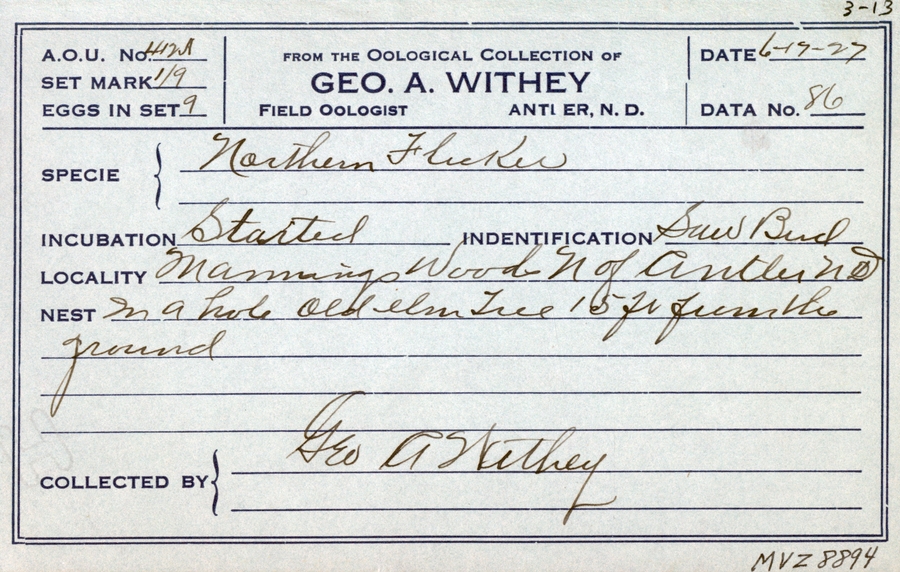 3-13
A.O.U. No. 412a
SET MARK 1/9
EGGS IN SET 9
FROM THE OOLOGICAL COLLECTION OF
GEO. A. WITHEY
FIELD OOLOGIST ANTLER, N. D.
DATE 6-17-27
DATA NO. 86
SPECIE Northern Flicker
INCUBATION Started INDENTIFICATION Saw Bird
LOCALITY Mannings Woods N of Antler ND
NEST In a hole old elm Tree 15 ft from the
ground
COLLECTED BY Geo A Withey
MVZ 8894